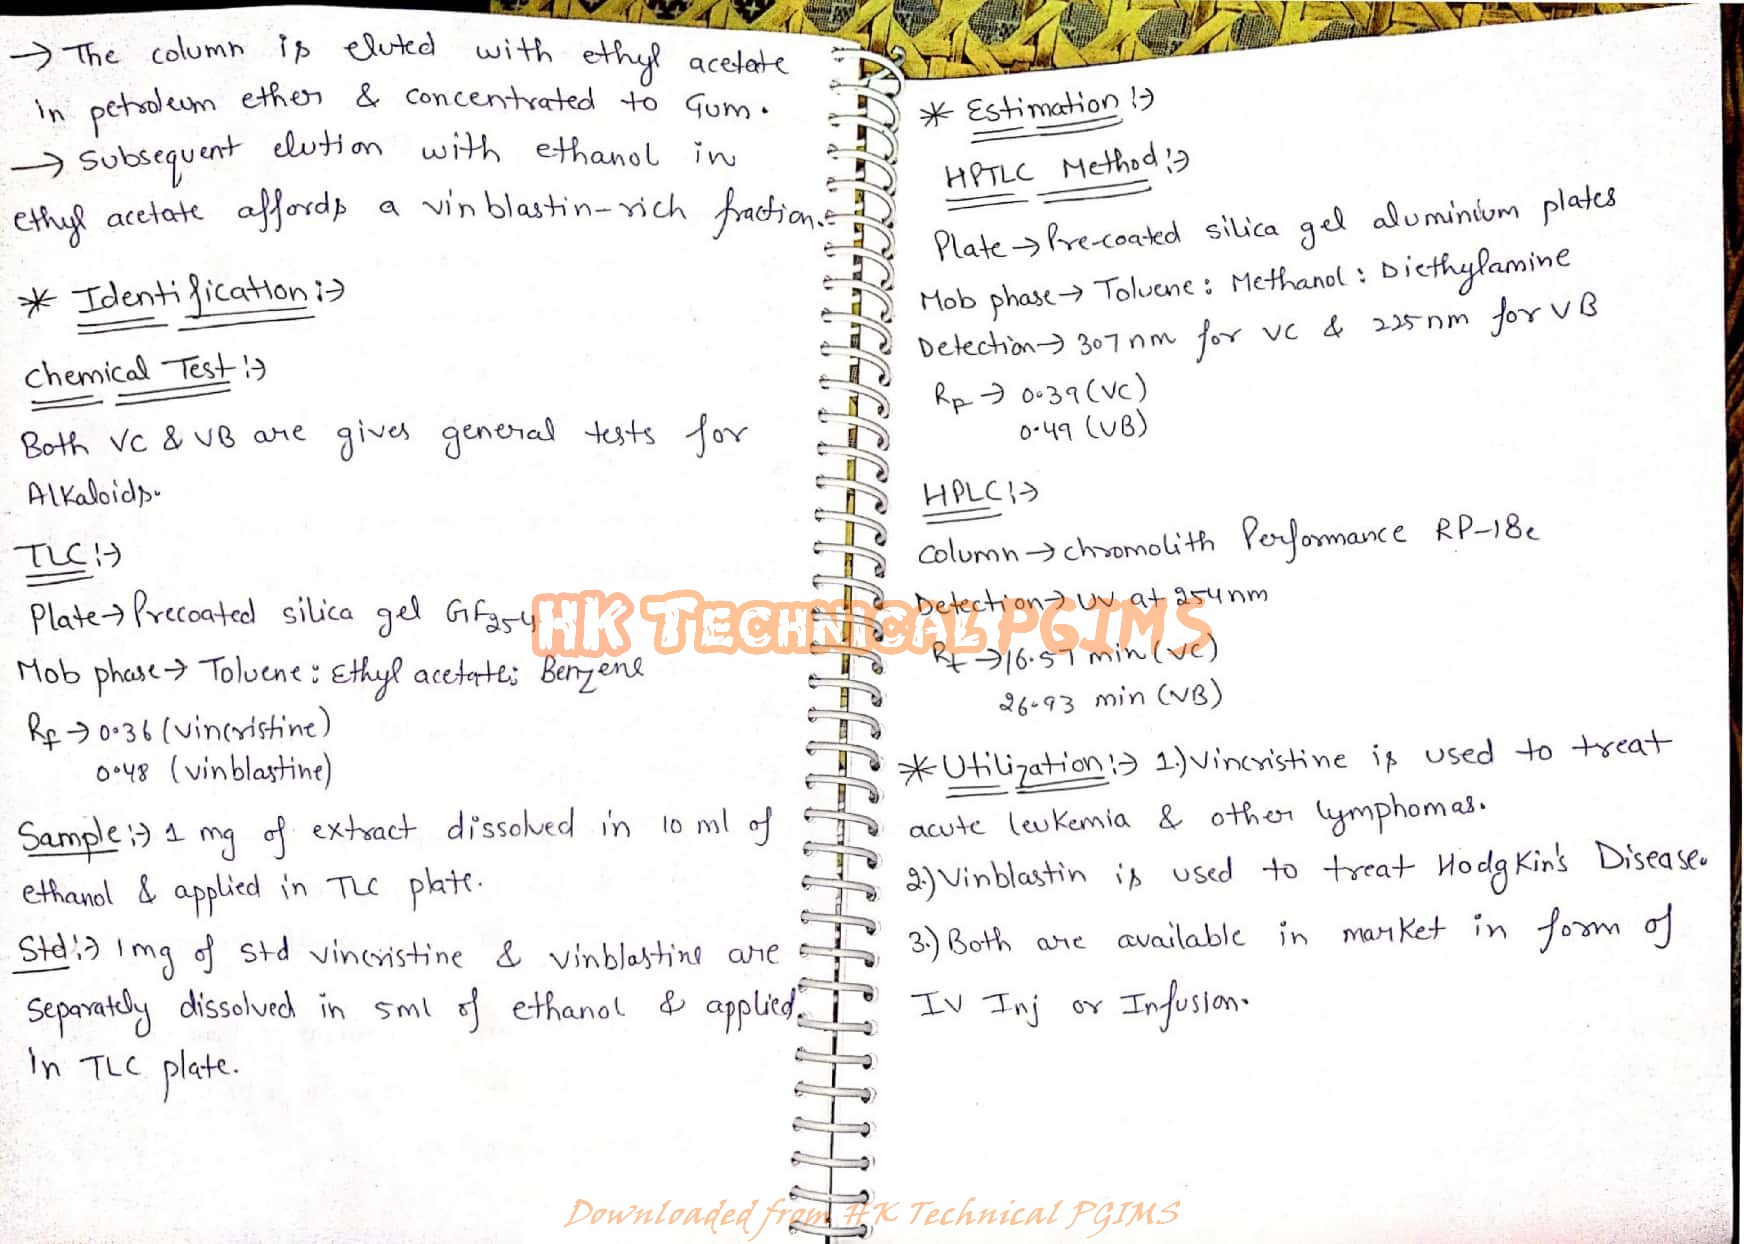 → The column is eluted with ethyl acetate
in petroleum ether & concentrated to Gum.
→ Subsequent elution with ethanol in
ethyl acetate affords a vinblastin-rich fraction.
* Identification:→
Chemical Test:→
Both VC & VB are gives general tests for
Alkaloids.
TLC:→
Plate→ Precoated silica gel GF254
Mob phase→ Toluene: Ethyl acetate: Benzene
Rf→ 0.36 (vincristine)
0.48 (vinblastine)
Sample:→ 1 mg of extract dissolved in 10 ml of
ethanol & applied in TLC plate.
Std:→ 1mg of std vincristine & vinblastine are
separately dissolved in 5ml of ethanol & applied
in TLC plate.
* Estimation:→
HPTLC Method:→
Plate→ Pre-coated silica gel aluminium plates
Mob phase→ Toluene: Methanol: Diethylamine
Detection→ 307nm for VC & 225nm for VB
RF → 0.39 (VC)
0.49 (VB)
HPLC:→
Column→ chromolith Performance RP-18e
Detection→ UV at 254nm
Rt →16.57 min (VC)
26.93 min (VB)
* Utilization:→ 1.) Vincristine is used to treat
acute leukemia & other lymphomas.
2.) Vinblastin is used to treat Hodgkin's Disease.
3.) Both are available in market in form of
IV Inj or Infusion.
HK Technical PGIMS
Downloaded from HK Technical PGIMS